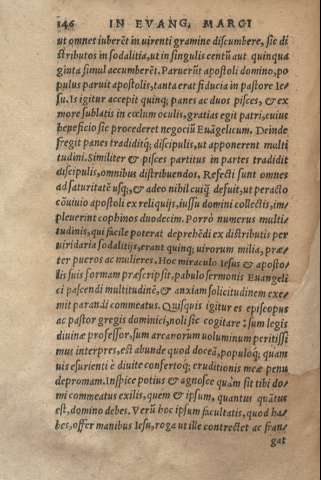 146 IN EVANG. MARCI
ut omnes iuberẽt in uirenti gramine discumbere, sic di
stributos in sodalitia, ut in singulis centũ aut quinqua
ginta simul accumberẽt. Paruerũt apostoli domino, po
pulus paruit apostolis, tanta erat fiducia in pastore Ie-
su. Is igitur accepit quinq; panes ac duos pisces, & ex
more sublatis in cœlum oculis, gratias egit patri, cuius
beneficio sic procederet negociũ Euãgelicum. Deinde
fregit panes tradiditq́; discipulis, ut apponerent multi
tudini. Similiter & pisces partitus in partes tradidit
discipulis, omnibus distribuendos. Refecti sunt omnes
ad saturitatẽ usq;, & adeo nihil cuiq̃ defuit, ut peracto
cõuiuio apostoli ex reliquijs, iussu domini collectis, im-
pleuerint cophinos duodecim. Porrò numerus multi-
tudinis, qui facile poterat deprehẽdi ex distributis per
uiridaria sodalitijs, erant quinq; uirorum milia, præ-
ter pueros ac mulieres. Hoc miraculo Iesus & aposto-
lis suis formam præscripsit, pabulo sermonis Euangeli
ci pascendi multitudinẽ, & anxiam solicitudinem exe-
mit parandi commeatus. Quisquis igitur es episcopus
ac pastor gregis dominici, noli sic cogitare: sum legis
diuinæ professor, sum arcanorum uoluminum peritissi
mus interpres, est abunde quod doceã, populoq́; quam
uis esurienti è diuite confertoq́; eruditionis meæ penu
depromam. Inspice potius & agnosce quàm sit tibi do-
mi commeatus exilis, quem & ipsum, quantus quãtus
est, domino debes. Verũ hoc ipsum facultatis, quod ha-
bes, offer manibus Iesu, roga ut ille contrectet ac fran-
gat